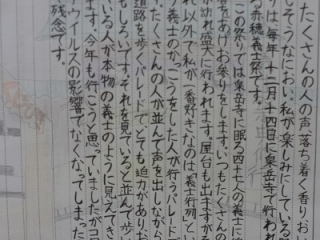 たくさんの人の声、落ち着く香り、おい
しそうなにおい。私が楽しみにしている
りは、毎年十二月十四日に泉岳寺で行われ
る赤穂義士祭です。
この祭りでは泉岳寺に眠る四十七人の義士に
香をあげお参りをします。いつもたくさんの
が訪れ盛大に行われます。屋台も出ますが
れ以外で私が一番好きなのは義士行列とい
う義士のかっこうをした人が行うパレードで
す。たくさんの人が並んで声を出しながら
道路を歩くパレードでとても迫力があり、お
もしろいです。それを見ていると並んで歩い
ている人が本物の義士のように見えてき
ます。今年も行こうと思っていましたがコロ
ナウイルスの影響でなくなってしまった
残念です。